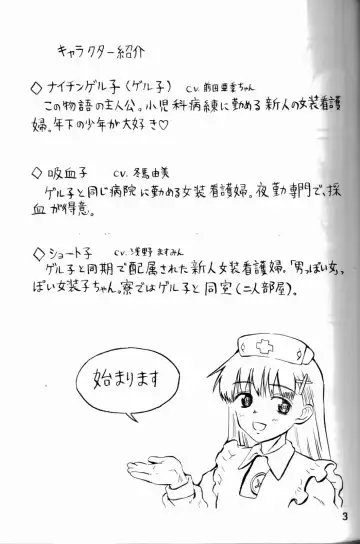 キャラクター紹介
◇ナイチンゲル子(ゲル子) CV.前田亜季ちゃん
この物語の主人公。小児科病練に勤める新人の女装看護
婦。年下の少年が大好き♡
◇吸血子 CV.冬馬由美
ゲル子と同じ病院に勤める女装看護婦。夜勤専門で、採
血が得意。
◇ショート子 CV.浅野ますみん
ゲル子と同期で配属された新人女装看護婦。「男っぽい女」っ
ぽい女装子ちゃん。寮ではゲル子と同室(二人部屋)。
始まります
3